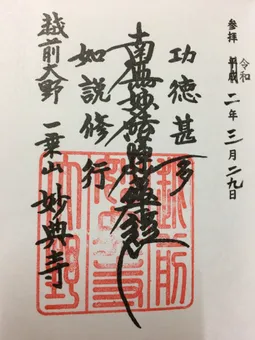 参拝 平成 令和 二年三月二九日
功徳甚多
南無妙法蓮華経
如説修行
一乗山 妙典寺
越前大野
越前
大野